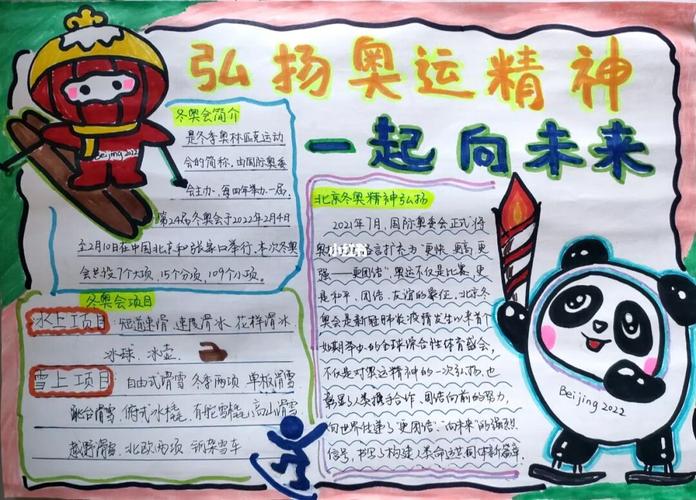 弘扬奥运精神
一起向未来
Beijing 2022
冬奥会简介
是冬季奥林匹克运动
会的简称,由国际奥委
会主办,每四年举办一届。
第24届冬奥会于2022年2月4日
至2月10日在中国北京和张家口举行,本次冬奥
会共设7个大项,15个分项,109个小项。
冬奥会项目
冰上项目 短道速滑 速度滑冰 花样滑冰
冰球、冰壶
雪上项目 自由式滑雪 冬季两项 单板滑雪
跳台滑雪、俯式冰橇、有舵雪橇、高山滑雪
越野滑雪、北欧两项
北京冬奥精神弘扬
2021年7月,国际奥委会正式将
奥 言扩充为“更快、更高、更
强——更团结”,奥运不仅是比赛,更
是和平、团结、友谊的象征,北京冬
奥会是新冠肺炎疫情发生以来首个
如期举办的全球综合性体育盛会,
不仅是对奥运精神的一次弘扬,也
彰显了人类携手合作、团结向前的努力,
向世界传递了“更团结”“向未来”的强烈
信号,书写了构建人类命运共同体新篇章
Beijing 2022